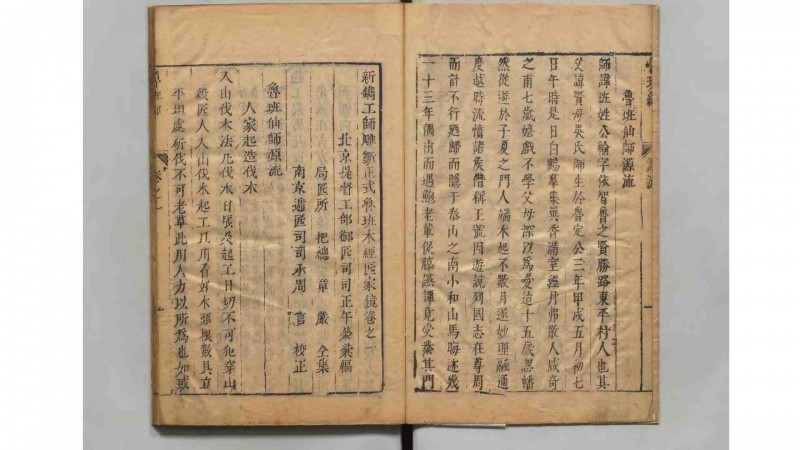 魯班仙師源流
師諱班姓公輸字依智魯之賢勝路東平村人也其
父諱賢母吳氏師生於魯定公三年甲戌五月初七
日午時是日白鶴羣集異香滿室經月弗散人咸奇
之甫七歲嬉戲不學父母深以為憂迨十五歲忽幡
然從遊於子夏之門人端木起不數月遂妙理融通
度越時流憤諸矦僭稱王號因遊說列國志在尊周
而計不行廼歸而隱于泰山之南小和山焉晦迹幾
一十三年偶出而遇鮑老輩促膝讌譚竟受業其門
新鐫工師雕斲正式魯班木經匠家鏡卷之一
北京提督工部御匠司司正午榮彙編
局匠所把總章嚴仝集
南京遞匠司司承周言校正
魯班仙師源流
人家起造伐木
入山伐木法凡伐木日辰及起工日切不可犯穿山
殺匠人入山伐木起工且用看好木頭根數具立
平坦處斫伐不可老草此用人力以所為也如或